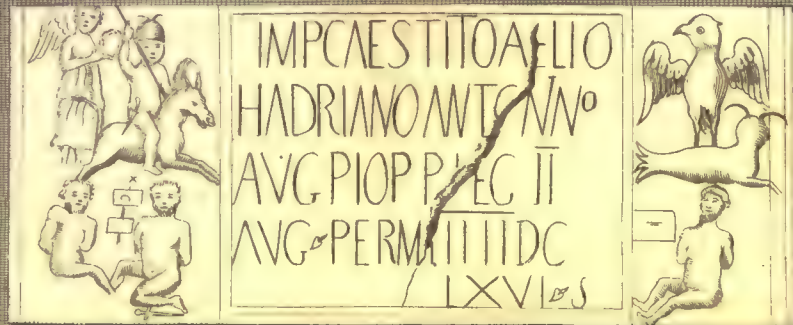 IMPCAESTITOAELIO
HADRIANO ANTONINO
AVG PIOP P LEG II
AVG PERM IIIIIDC
LXVI S